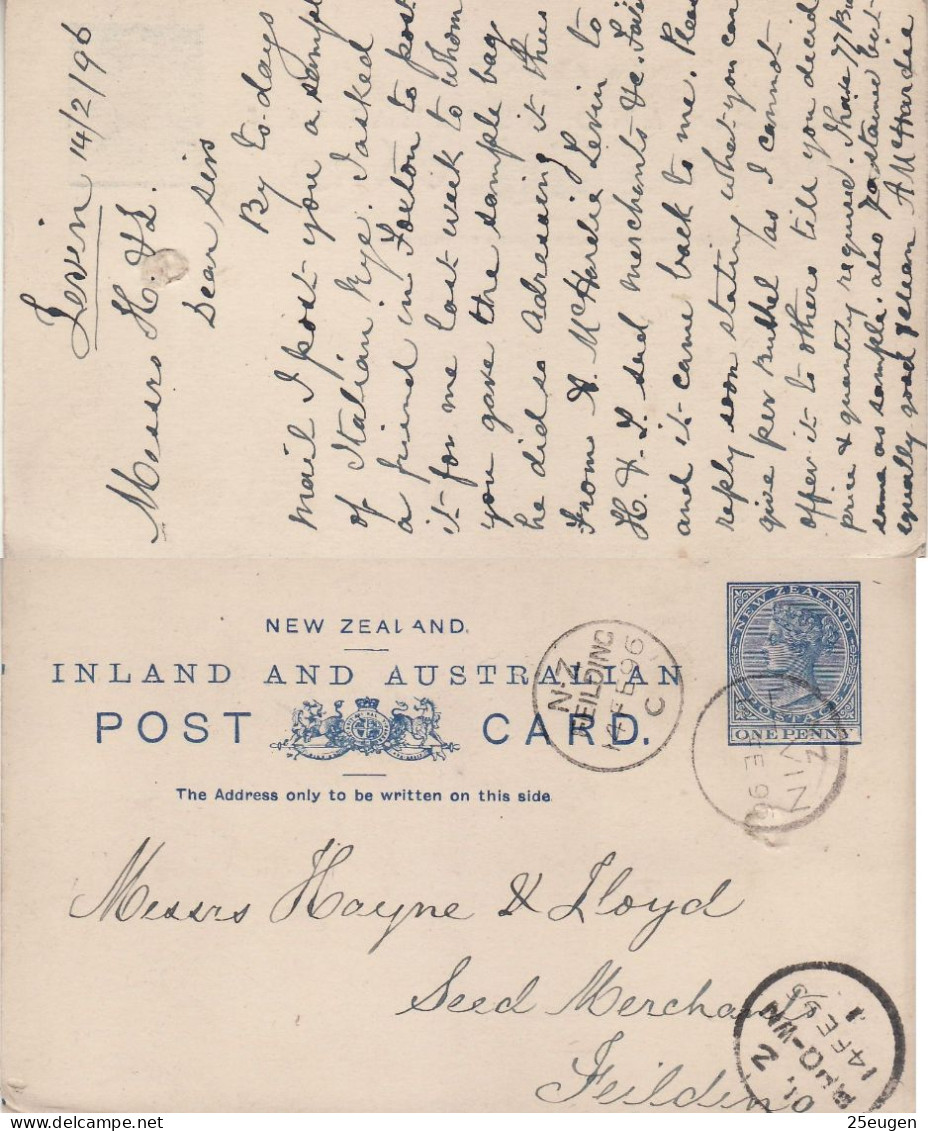 Levin 14/2/96
Messrs H. & L.
Dear sirs
By to-days
mail I post you a sample
of Italian Rye. I asked
a friend in Foxton to post
it for me last week to whom
you gave the sample bag
he did so Adressing it thus
From A. McHardie Levin to
H. & L. seed Merchants &c. Feild
and it came back to me. Please
reply soon stating what you can
give per Bushel as I cannot
offer it to others till you decide
price & quantity required. I have 77 Bus
same as sample. also 70 stained but
equally good A McHardie
NEW ZEALAND.
INLAND AND AUSTRALIAN
POST CARD.
The Address only to be written on this side.
NEW ZEALAND
POSTAGE
ONE PENNY
N.Z
FEILDING
14 FE 96
C
LEVIN
N Z
FE 96
Messrs Hayne & Lloyd
Seed Merchants
Feilding
14 FE 96
1
25eugen